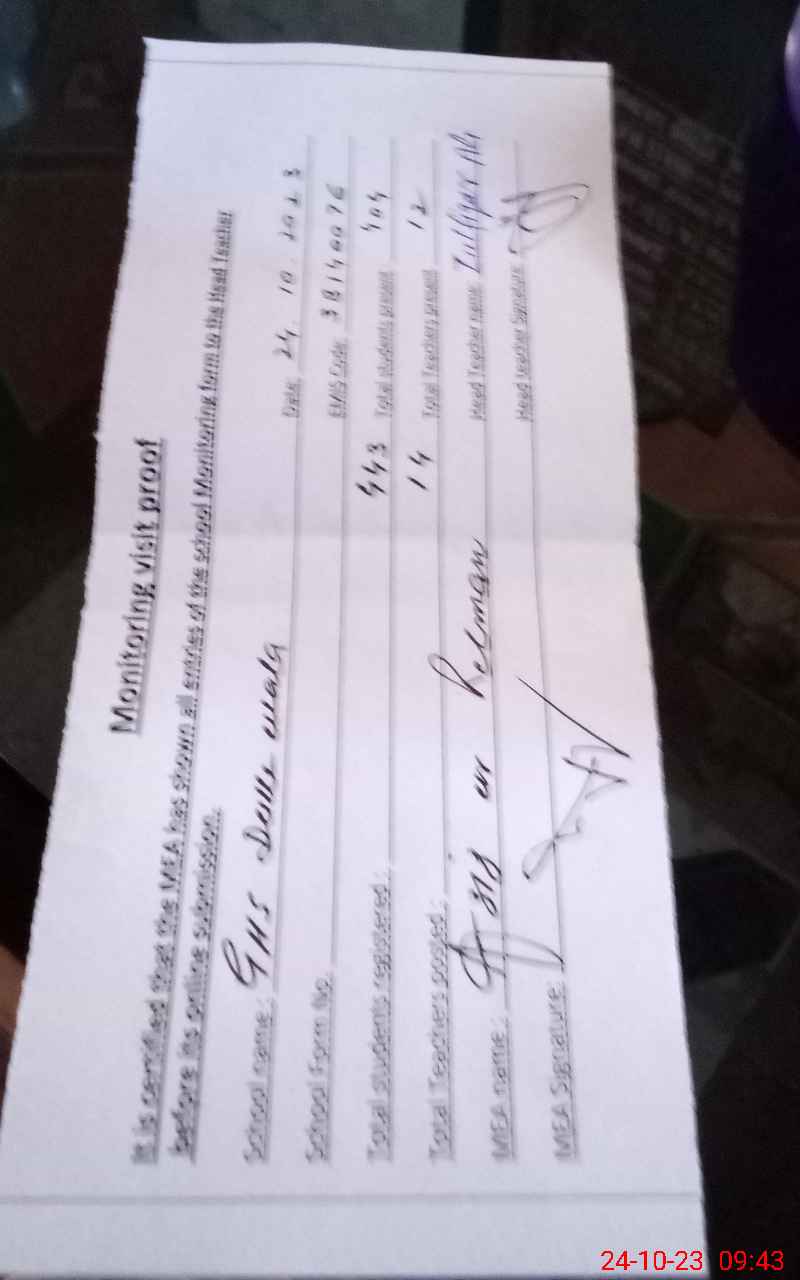 Monitoring visit proof
It is certified that the MEA has shown all entries of the school Monitoring form to the Head Teacher
before its online submission.
School name: GHS Date: 24.10.2023
School Form No. EMIS Code: 38140076
Total students registered: 443 Total students present 404
Total Teachers posted: 14 Total Teachers present 12
MEA name: ur Rehman Head Teacher name: Zulfiqar Ali
MEA Signature: Head teacher Signature:
24-10-23 09:43